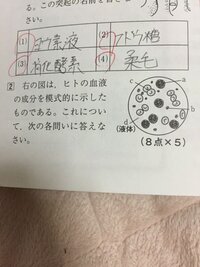 (1) ヨウ素液 (2) ブドウ糖
(3) 消化酵素 (4) 柔毛
2 右の図は、ヒトの血液
の成分を模式的に示し
たものである。これについ
て、次の各問いに答えな
さい。
c a
b
d
(液体)
(8点×5)